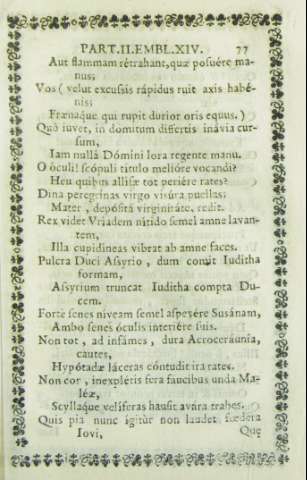 PART.II.EMBL.XIV. 77
Aut flammam rétrahant, quæ posuére ma-
nus;
Vos ( velut excussis rápidus ruit axis habé-
nis;
Frænaque qui rupit durior oris equus. )
Quò iuvet, in domitum differtis inávia cur-
sum,
Iam nullâ Dómini lora regente manu.
O óculi! scópuli titulo melióre vocandi?
Heu quibus allisæ tot periére rates?
Dina peregrinas virgo visúra puellas;
Mater, depósitâ virginitáte, redit.
Rex videt Vriadem nitido semel amne lavan-
tem,
Illa cupidineas vibrat ab amne faces.
Pulcra Duci Assyrio, dum comit Iuditha
formam,
Assyrium truncat Iuditha compta Du-
cem.
Forte senes niveam semel aspexére Susánam,
Ambo senes óculis interiére suis.
Non tot, ad infámes, dura Acroceráunia,
cautes,
Hypótadæ láceras cóntudit ira rates.
Non cor, inexplétis fera faucibus unda Ma-
léæ,
Scyllaque velíferas hausit avára trabes.
Quis pia nunc ígitur non laudet fœdera
Iovi, Quę